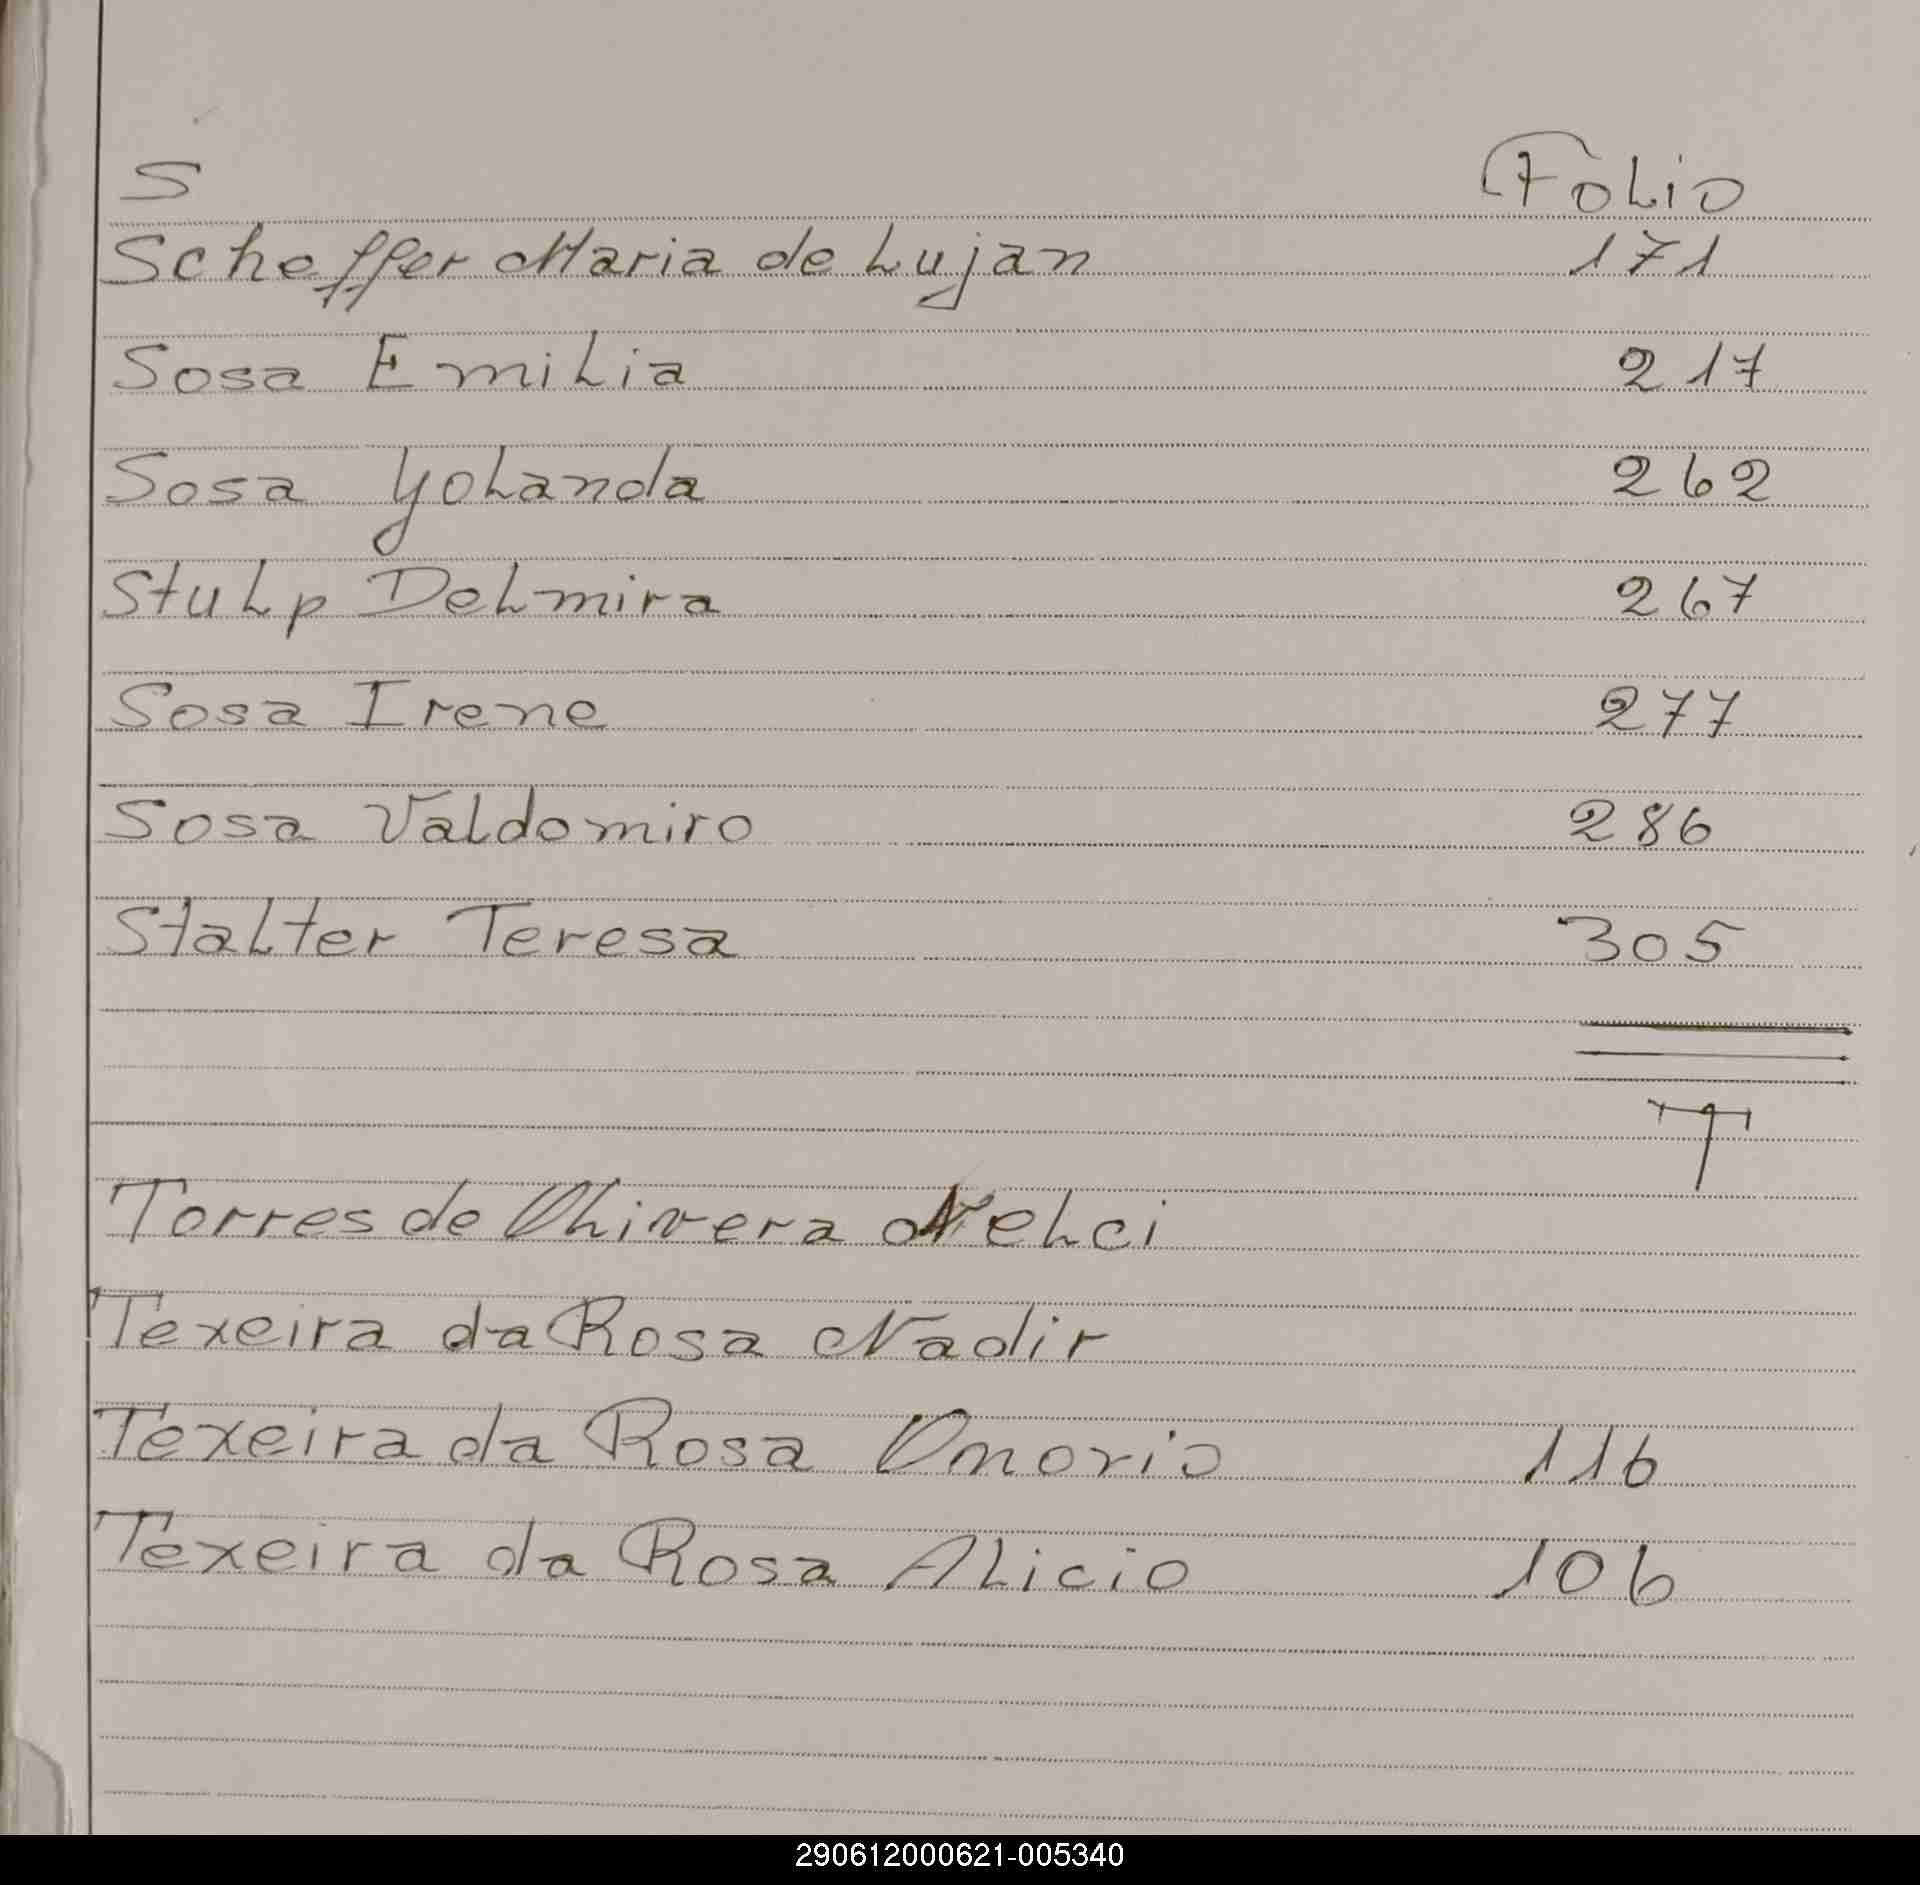 S Folio
Scheffer Maria de Lujan 171
Sosa Emilia 217
Sosa Yolanda 262
Stulp Delmira 267
Sosa Irene 277
Sosa Valdomiro 286
Stalter Teresa 305
T
Torres de Olivera Nelci
Texeira da Rosa Nadir
Texeira da Rosa Onorio 116
Texeira da Rosa Alicio 106
290612000621-005340